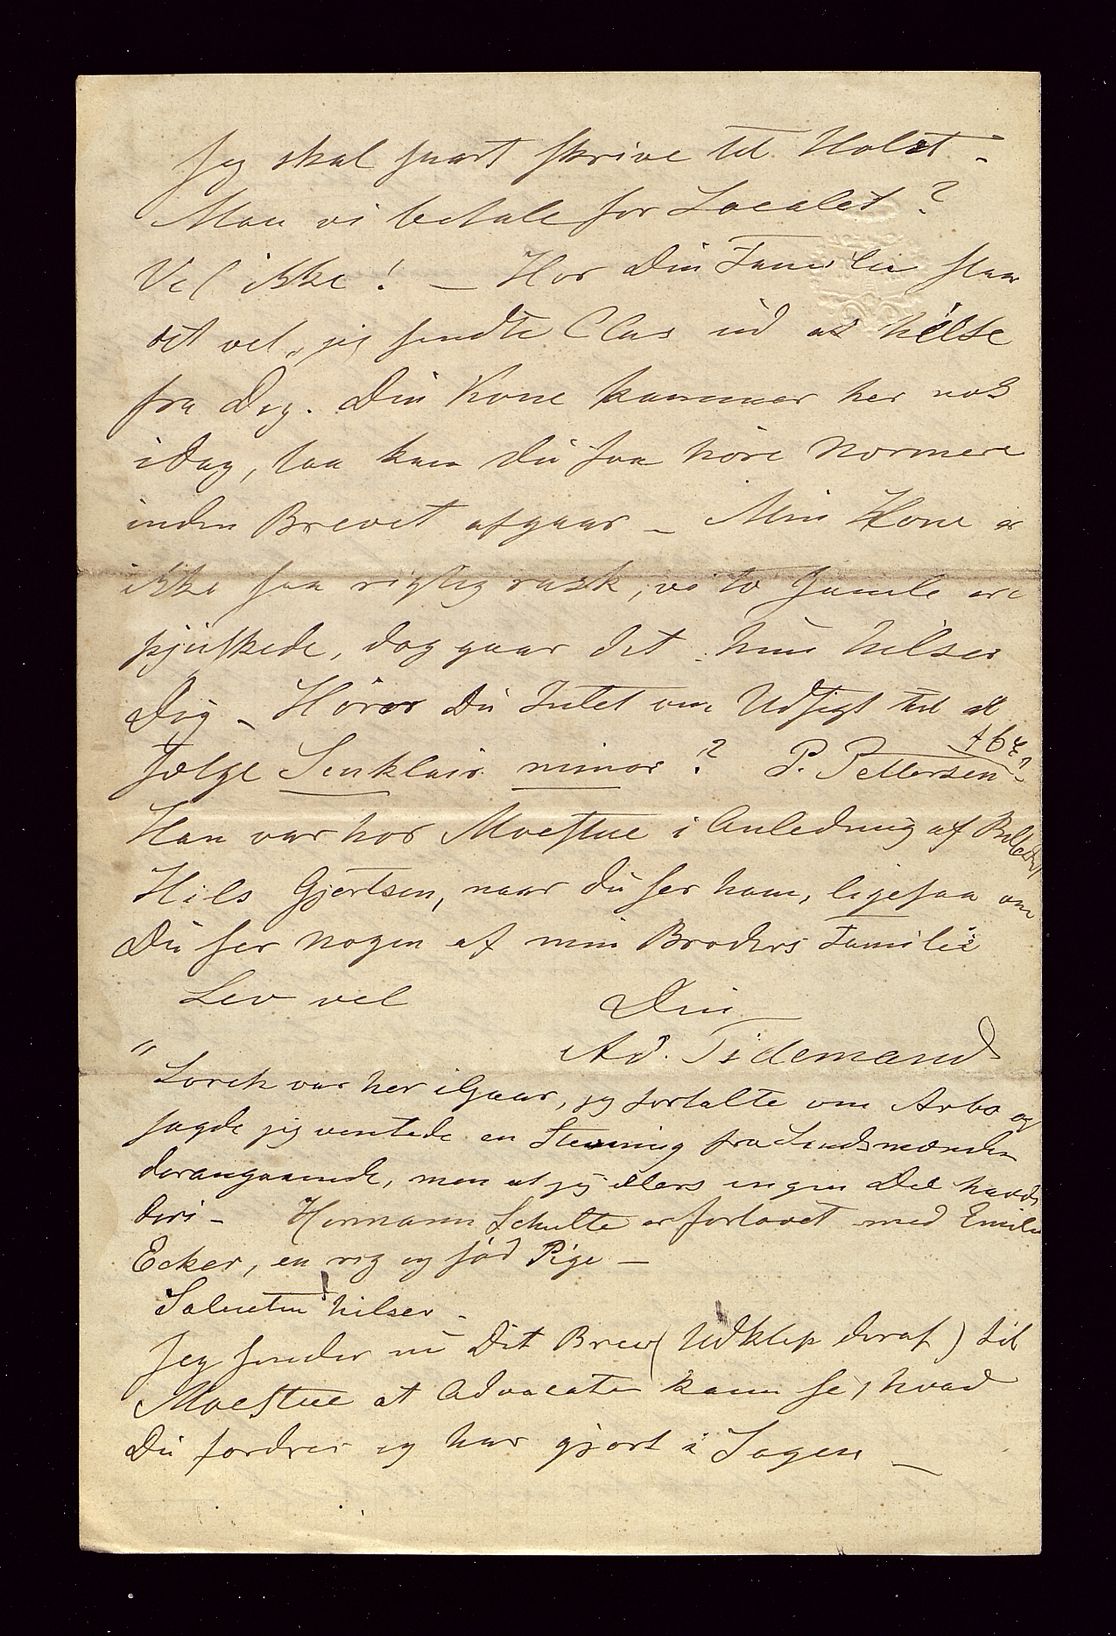 Jeg skal snart skrive til Holst –
Maa vi betale for Localet?
Vel ikke! – Hos Din Familie staar
det vel, jeg sendte Clas ud at hilse
fra Dig. Din Kone kommer her nok
idag, saa kan Du faa høre nærmere
inden Brevet afgaar – Min Kone er
ikke saa rigtig rask, vi to Gamle ere
pjuskede, dog gaar det. hun hilser
Dig – Hører Du Intet om Udsigt til at
sælge Sinklair minor? P. Pettersen
Han var hos Moestue i Anledning af Billedet
Hils Gjertsen, naar Du ser ham, ligesaa om
Du ser nogen af min Broders Familie
Lev vel Din
Ad. Tidemand
" Lorck var her igaar, jeg fortalte om Arbo og
sagde jeg ventede en Stevning fra Lensmanden
derangaaende, men at jeg ellers ingen Del havde
deri – Hermann Schulte er forlovet med Emilie
Ecker, en rig og sød Pige –
hilser –
Jeg sender nu Dit Brev (Udklip deraf) til
Moestue at Advocaten kan se, hvad
Du fordrer og har gjort i Sagen –